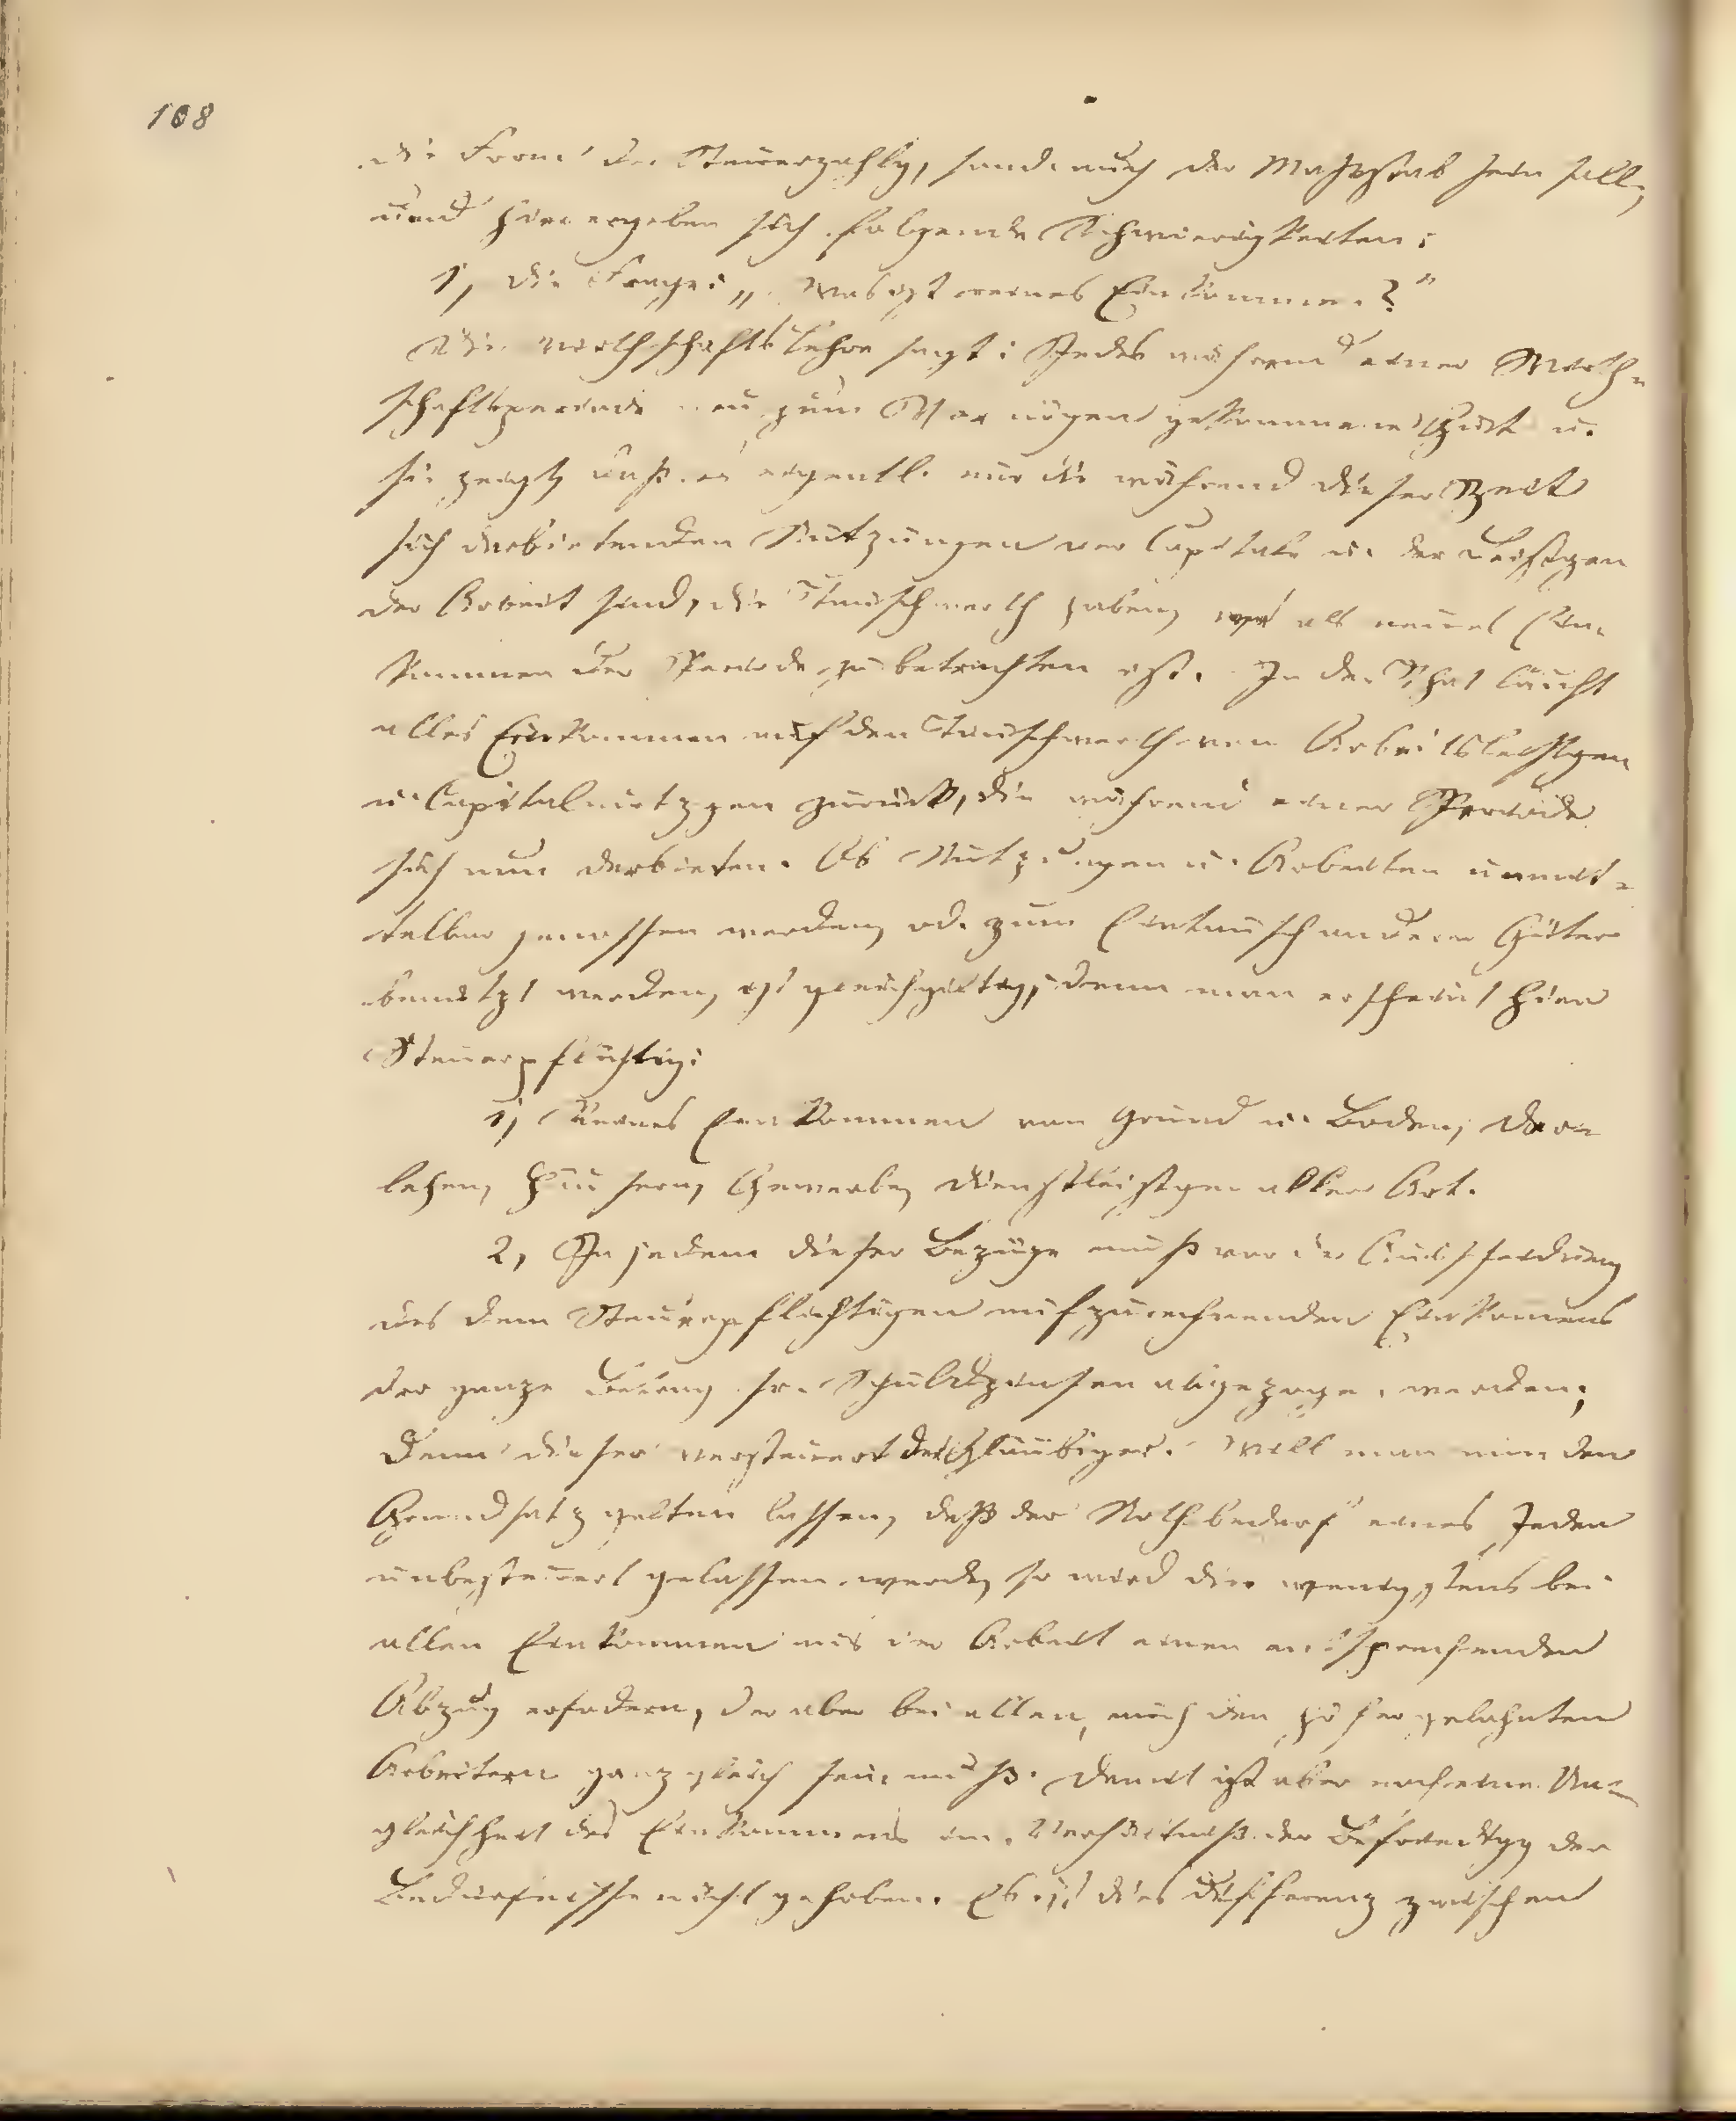 108
die Form der Steuerzahlg, sond. auch der Maßstab sein soll,
und hier ergeben sich folgende Schwierigkeiten:
1, Die Frage: „Was ist reines Einkommen?"
Die Wirthschaftslehre sagt: Jedes während einer Wirth-
schaftsperiode neu zum Vermögen gekommene Gut u.
sie zeigt, daß es eigentl. nur die während dieser Zeit
sich darbietenden Nutzungen der Capitale u. der Leistgen
der Arbeit sind, die Tauschwerth haben, was als neues Ein-
kommen der Periode zu betrachten ist. In der That läuft
alles Einkommen auf den Tauschwerth von Arbeitsleistgen
u. Capitalnutzgen zurück, die während einer Periode
sich nun darbieten. Ob Nutzungen u. Arbeiten unmit-
telbar genossen werden, od. zum Eintausch anderer Güter
benützt werden, ist gleichgiltig; denn man erscheint hier
Steuerpflichtig:
1, Reines Einkommen von Grund u. Boden, Dar-
lehen, Häusern, Gewerbe, Dienstleistgen aller Art.
2, In jedem dieser Bezüge muß vor der Ausscheidung
des dem Steuerpflichtigen aufzurechnenden Einkomens
der ganze Betrag sr. Schuldzinsen abgezogen werden;
denn dieser versteuert der Gläubiger. Will man nun den
Grundsatz gelten lassen, daß der Nothbedarf eines Jeden
unbesteuert gelassen werde, so wird dies wenigstens bei
allen Einkommen aus der Arbeit einen entsprechenden
Abzug erfodern, der aber bei allen, auch den höher gelohnten
Arbeitern ganz gleich sein muß. Damit ist aber noch eine Un-
gleichheit des Einkommens im Verhältniß der Befriedigg der
Bedürfnisse nicht gehoben. Es ist dies Differenz zwischen